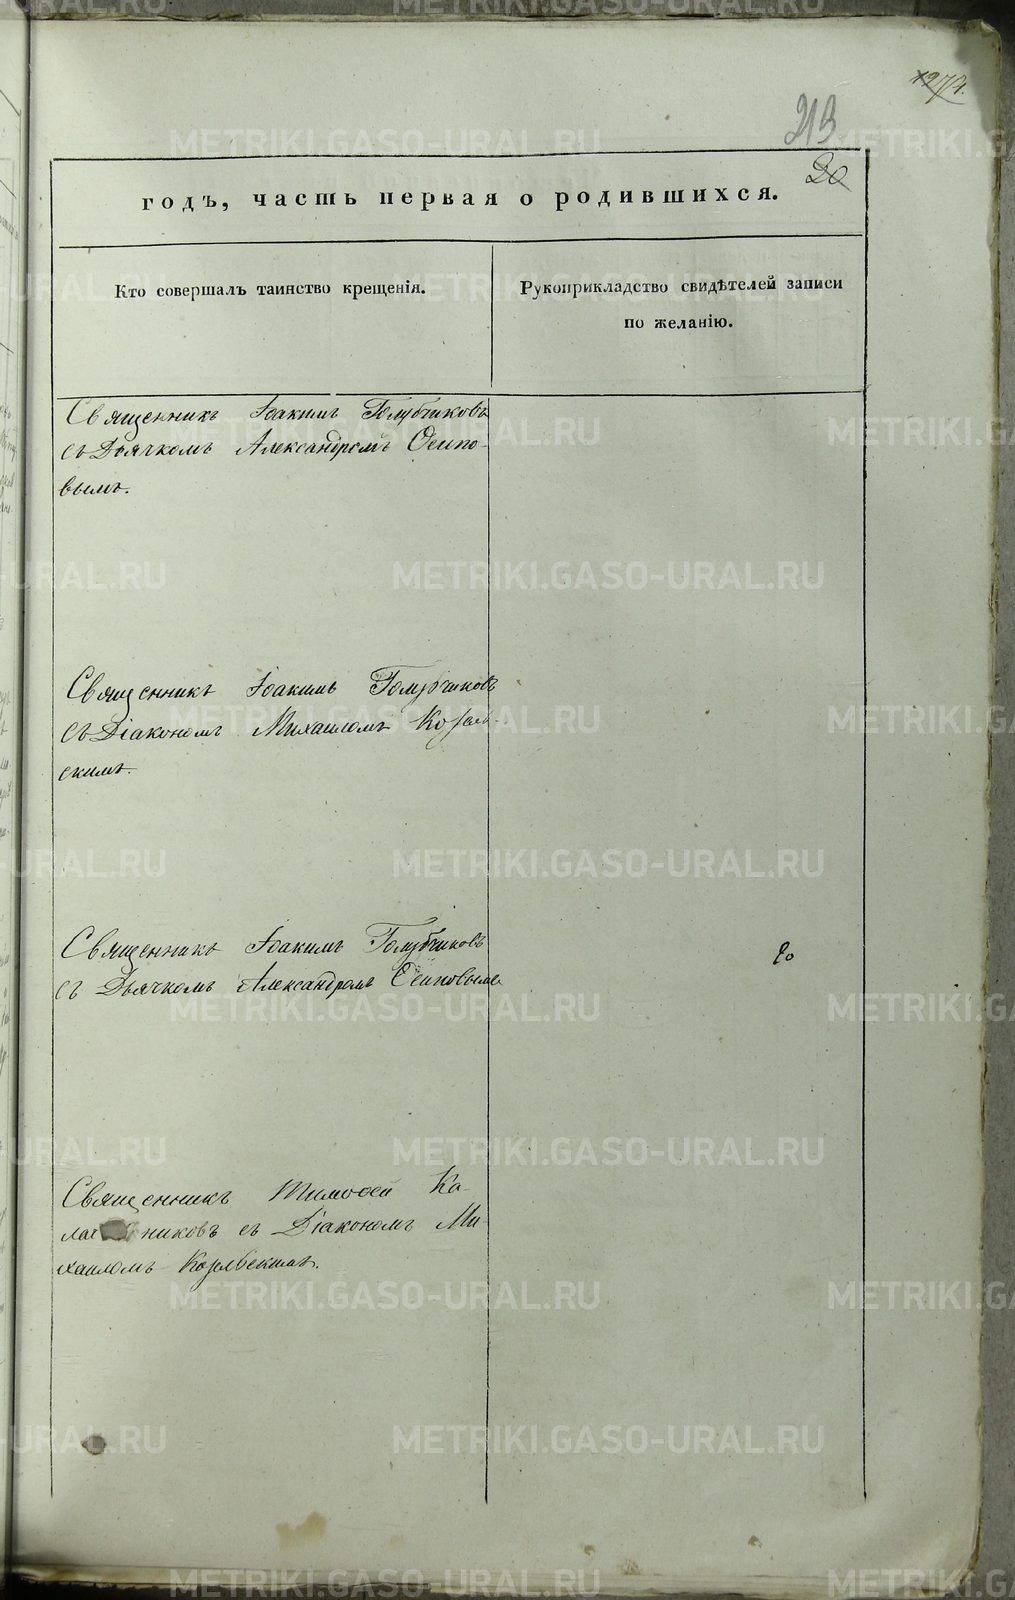 213
20
годъ, часть первая о родившихся.
Кто совершалъ таинство крещенія.
Рукоприкладство свидѣтелей записи
по желанію.
Священникъ Іоакимъ Голубчиковъ
съ Дьячкомъ Александромъ Осипо-
вымъ.
Священникъ Іоакимъ Голубчиковъ
съ Діакономъ Михаиломъ Козель-
скимъ.
Священникъ Іоакимъ Голубчиковъ
съ Дьячкомъ Александромъ Осиповымъ
Священникъ Тимофей Ка-
никовъ съ Діакономъ Ми-
хаиломъ Козельскимъ.
METRIKI.GASO-URAL.RU